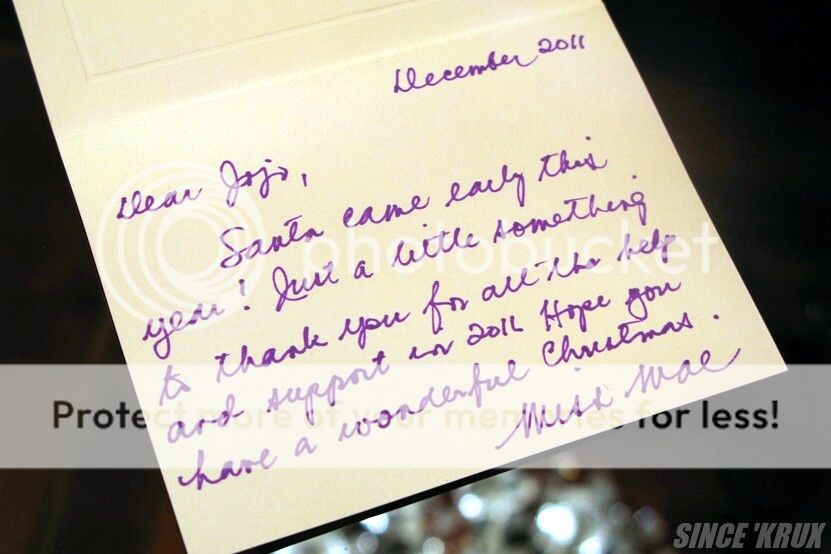 December 2011
Dear Jojo,
Santa came early this
year! Just a little something
to thank you for all the help
and support in 2011. Hope you
have a wonderful Christmas.
Miss Mae
photobucket
Protect more of your memories for less!
SINCE 'KRUX